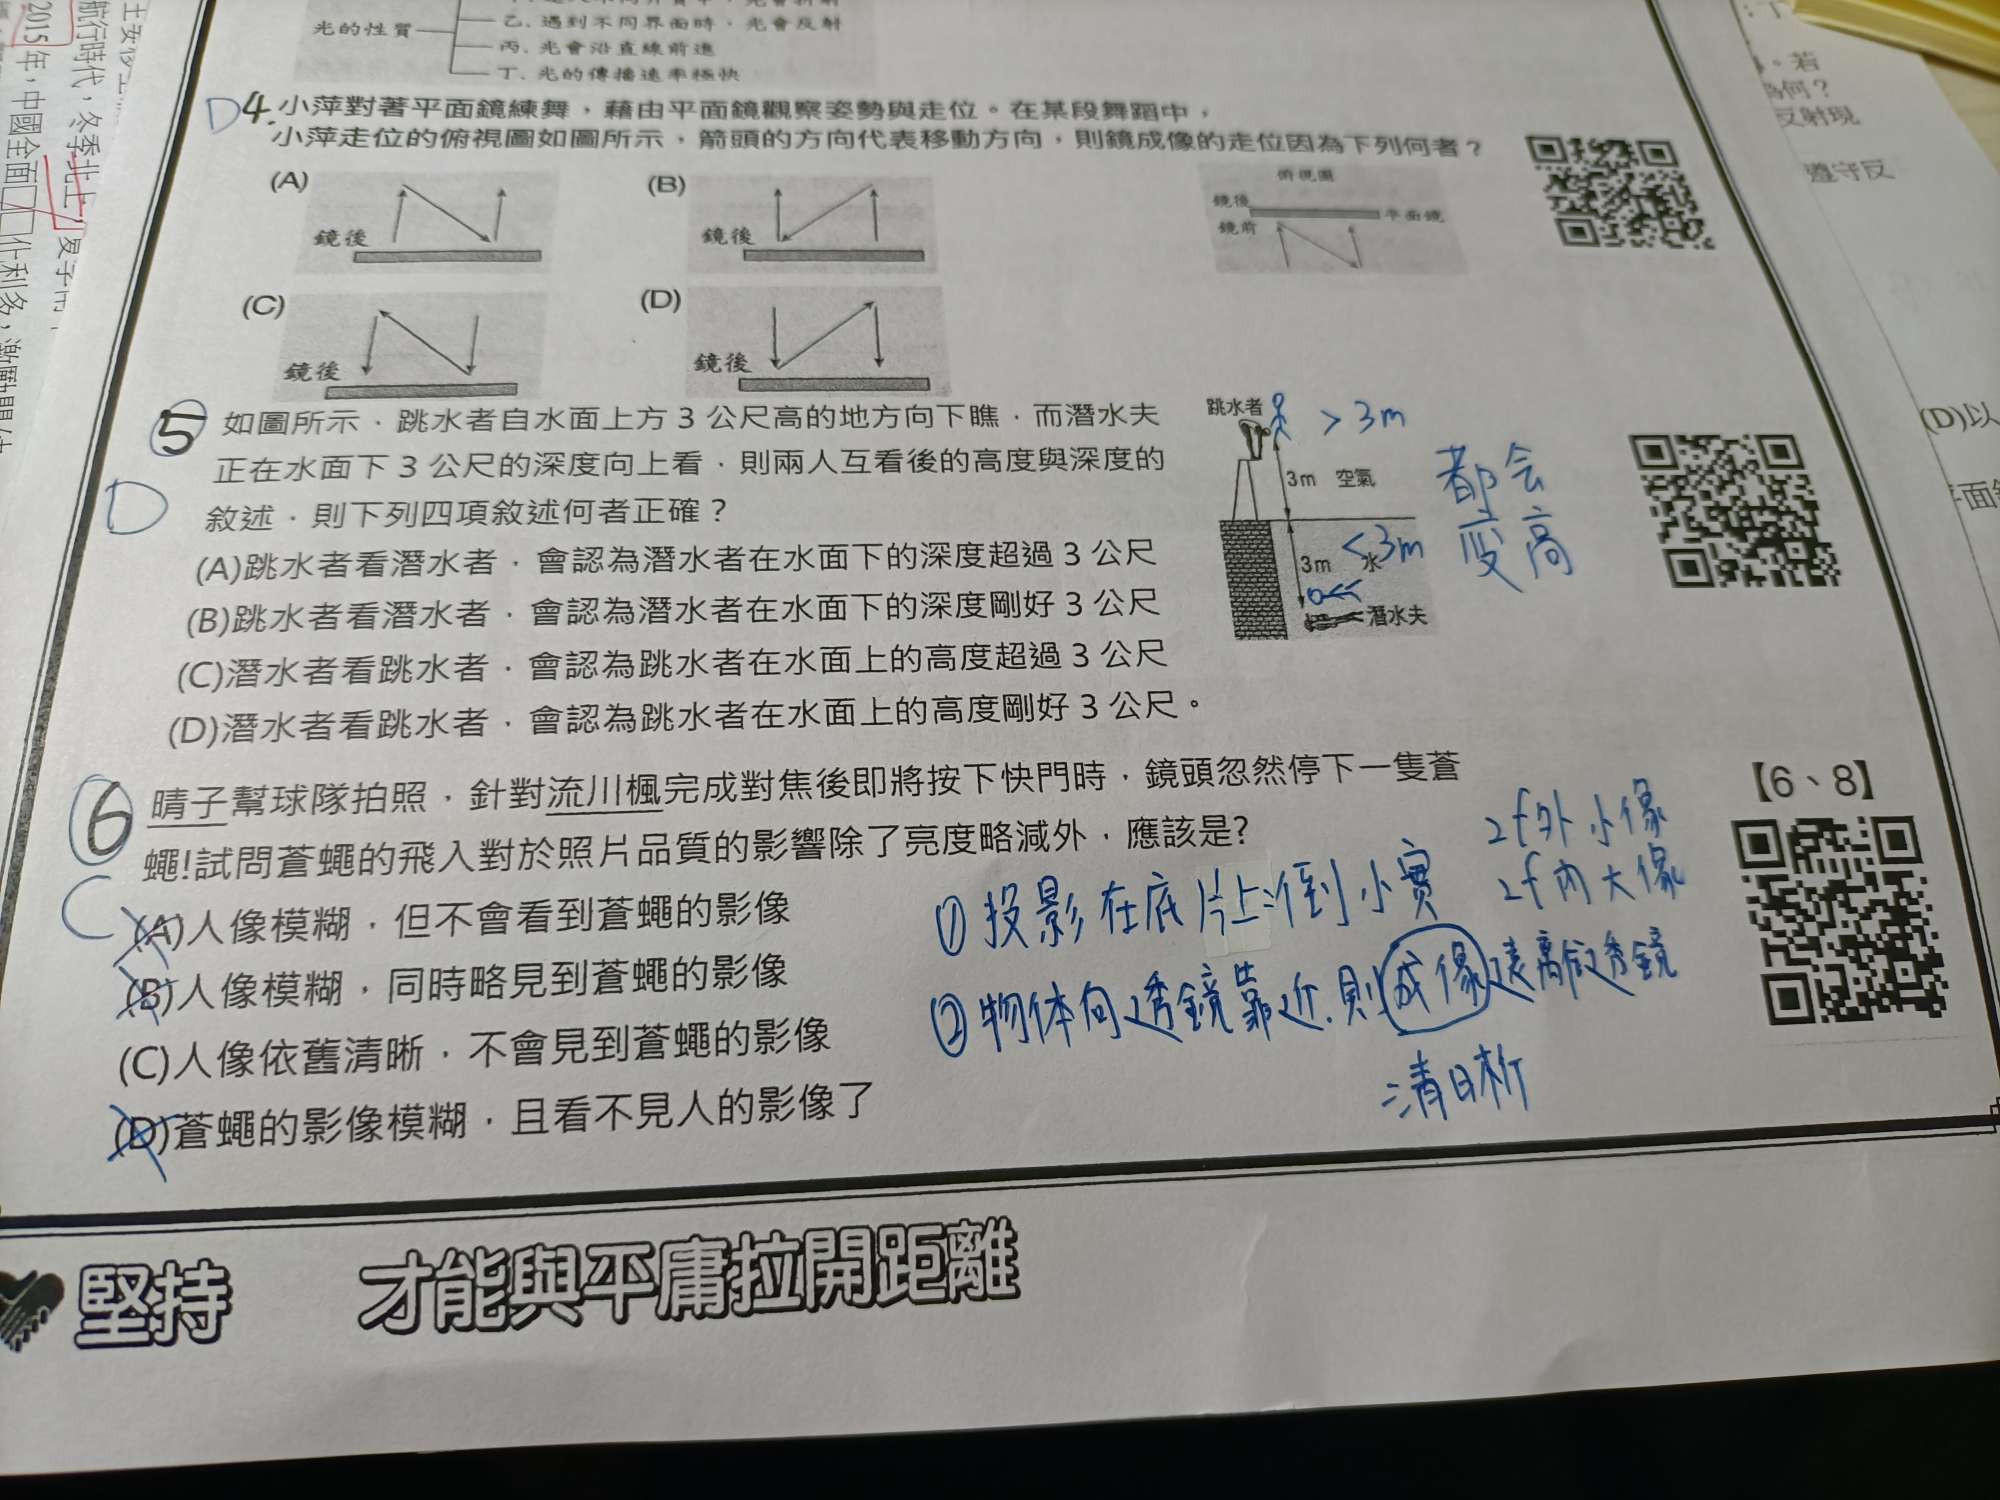 光的性質
乙、遇到不同界面時，光會反射
丙、光會沿直線前進
丁、光的傳播速率極快
D 4. 小萍對著平面鏡練舞，藉由平面鏡觀察姿勢與走位。在某段舞蹈中，
小萍走位的俯視圖如圖所示，箭頭的方向代表移動方向，則鏡成像的走位因為下列何者？
(A) 鏡後
(B) 鏡後
俯視圖
鏡後 平面鏡
鏡前
(C) 鏡後
(D) 鏡後
5 如圖所示，跳水者自水面上方 3 公尺高的地方向下瞧，而潛水夫
正在水面下 3 公尺的深度向上看，則兩人互看後的高度與深度的
敘述，則下列四項敘述何者正確？
D
(A)跳水者看潛水者，會認為潛水者在水面下的深度超過 3 公尺
(B)跳水者看潛水者，會認為潛水者在水面下的深度剛好 3 公尺
(C)潛水者看跳水者，會認為跳水者在水面上的高度超過 3 公尺
(D)潛水者看跳水者，會認為跳水者在水面上的高度剛好 3 公尺。
跳水者 > 3m
3m 空氣
3m 水 < 3m
潛水夫
都会
变高
6 晴子幫球隊拍照，針對流川楓完成對焦後即將按下快門時，鏡頭忽然停下一隻蒼
蠅!試問蒼蠅的飛入對於照片品質的影響除了亮度略減外，應該是?
C
(A)人像模糊，但不會看到蒼蠅的影像
(B)人像模糊，同時略見到蒼蠅的影像
(C)人像依舊清晰，不會見到蒼蠅的影像
(D)蒼蠅的影像模糊，且看不見人的影像了
【6、8】
2f外小像
2f內大像
①投影在底片上:倒小實
②物体向透鏡靠近,則成像遠離透鏡
清晰
堅持 才能與平庸拉開距離
航行時代，冬季北上
2015年，中國全面
若
為何？
反射現
遵守反
(D)以